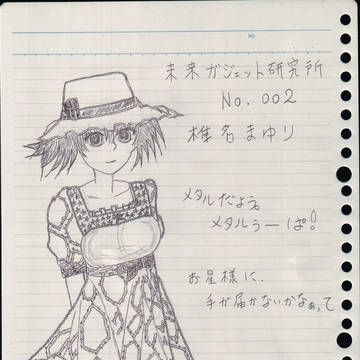 未来ガジェット研究所
No. 002
椎名まゆり
メタルだよぅ
メタルうーぱ!
お星様に、
手が届かないかなぁって